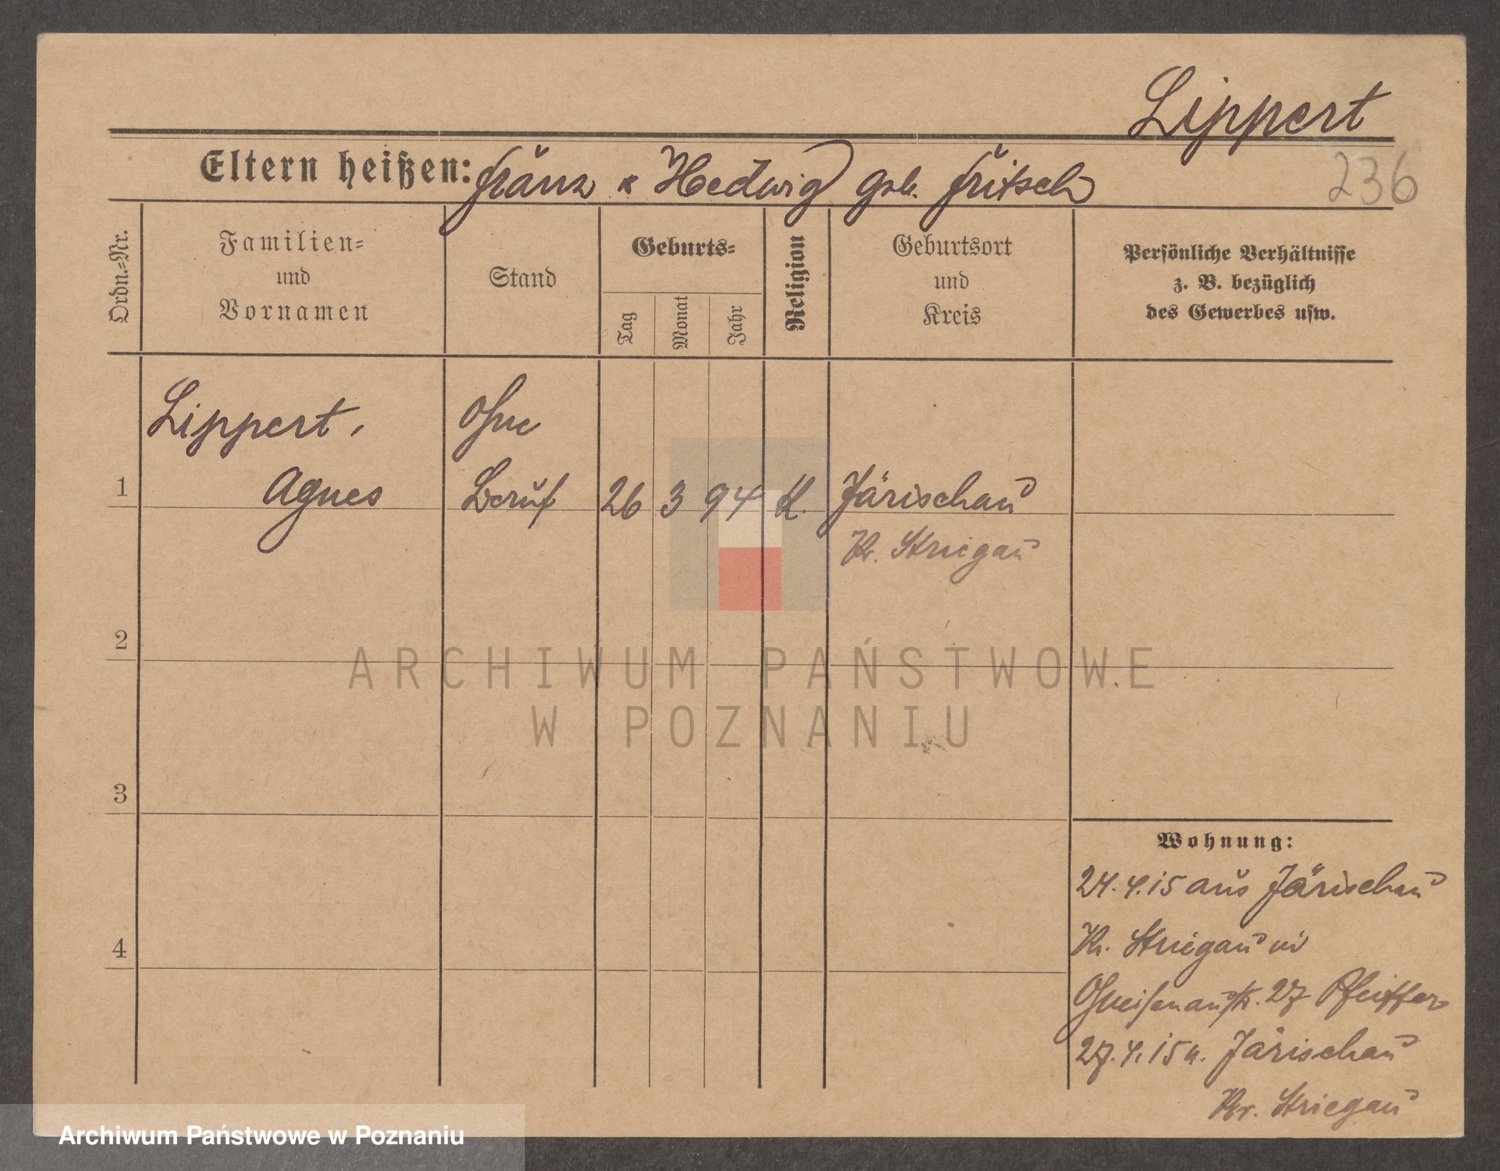 Lippert
236
Eltern heißen: Franz u Hedwig geb. Fritsch
Ordn.=Nr.
Familien=
und
Vornamen
Stand
Geburts=
Tag
Monat
Jahr
Religion
Geburtsort
und
Kreis
Persönliche Verhältnisse
z. B. bezüglich
des Gewerbes usw.
Lippert,
Agnes
Ohne
Beruf
1
26 3 94 K. Järischau
Kr. Striegau
2
ARCHIWUM PAŃSTWOWE
W POZNANIU
3
4
Wohnung:
24.4.15 aus Järischau
Kr. Striegau in
Gneisenaustr. 27 Pfeiffer
27.4.15 n. Järischau
Kr. Striegau
Archiwum Państwowe w Poznaniu